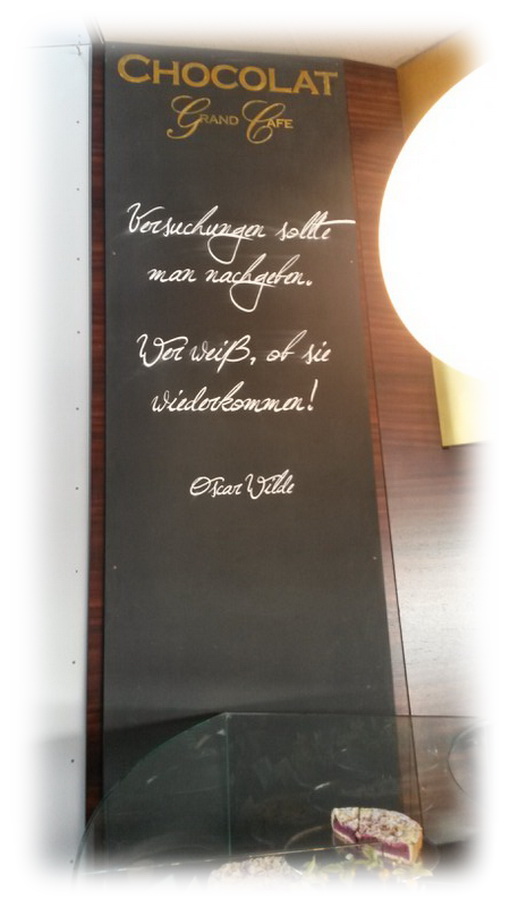 CHOCOLAT
GRAND CAFE
Versuchungen sollte
man nachgeben.
Wer weiß, ob sie
wiederkommen!
Oscar Wilde